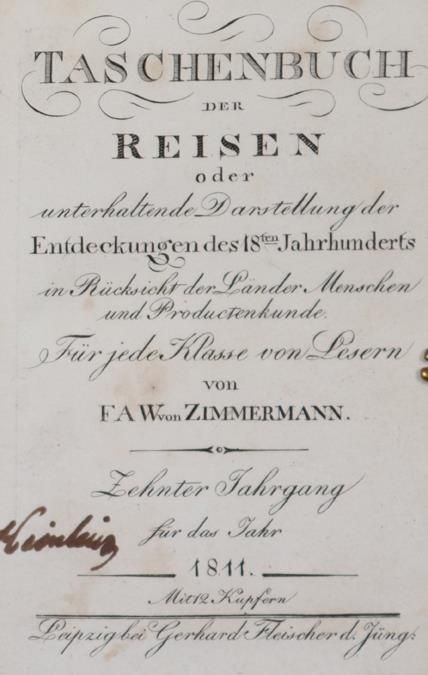 TASCHENBUCH
DER
REISEN
oder
unterhaltende Darstellung der
Entdeckungen des 18ten Jahrhunderts
in Rücksicht der Länder Menschen
und Productenkunde.
Für jede Klasse von Lesern
von
F.A.W. von ZIMMERMANN.
Zehnter Jahrgang
für das Jahr
1811.
Mit 12 Kupfern
Leipzig bei Gerhard Fleischer d. Jüng: